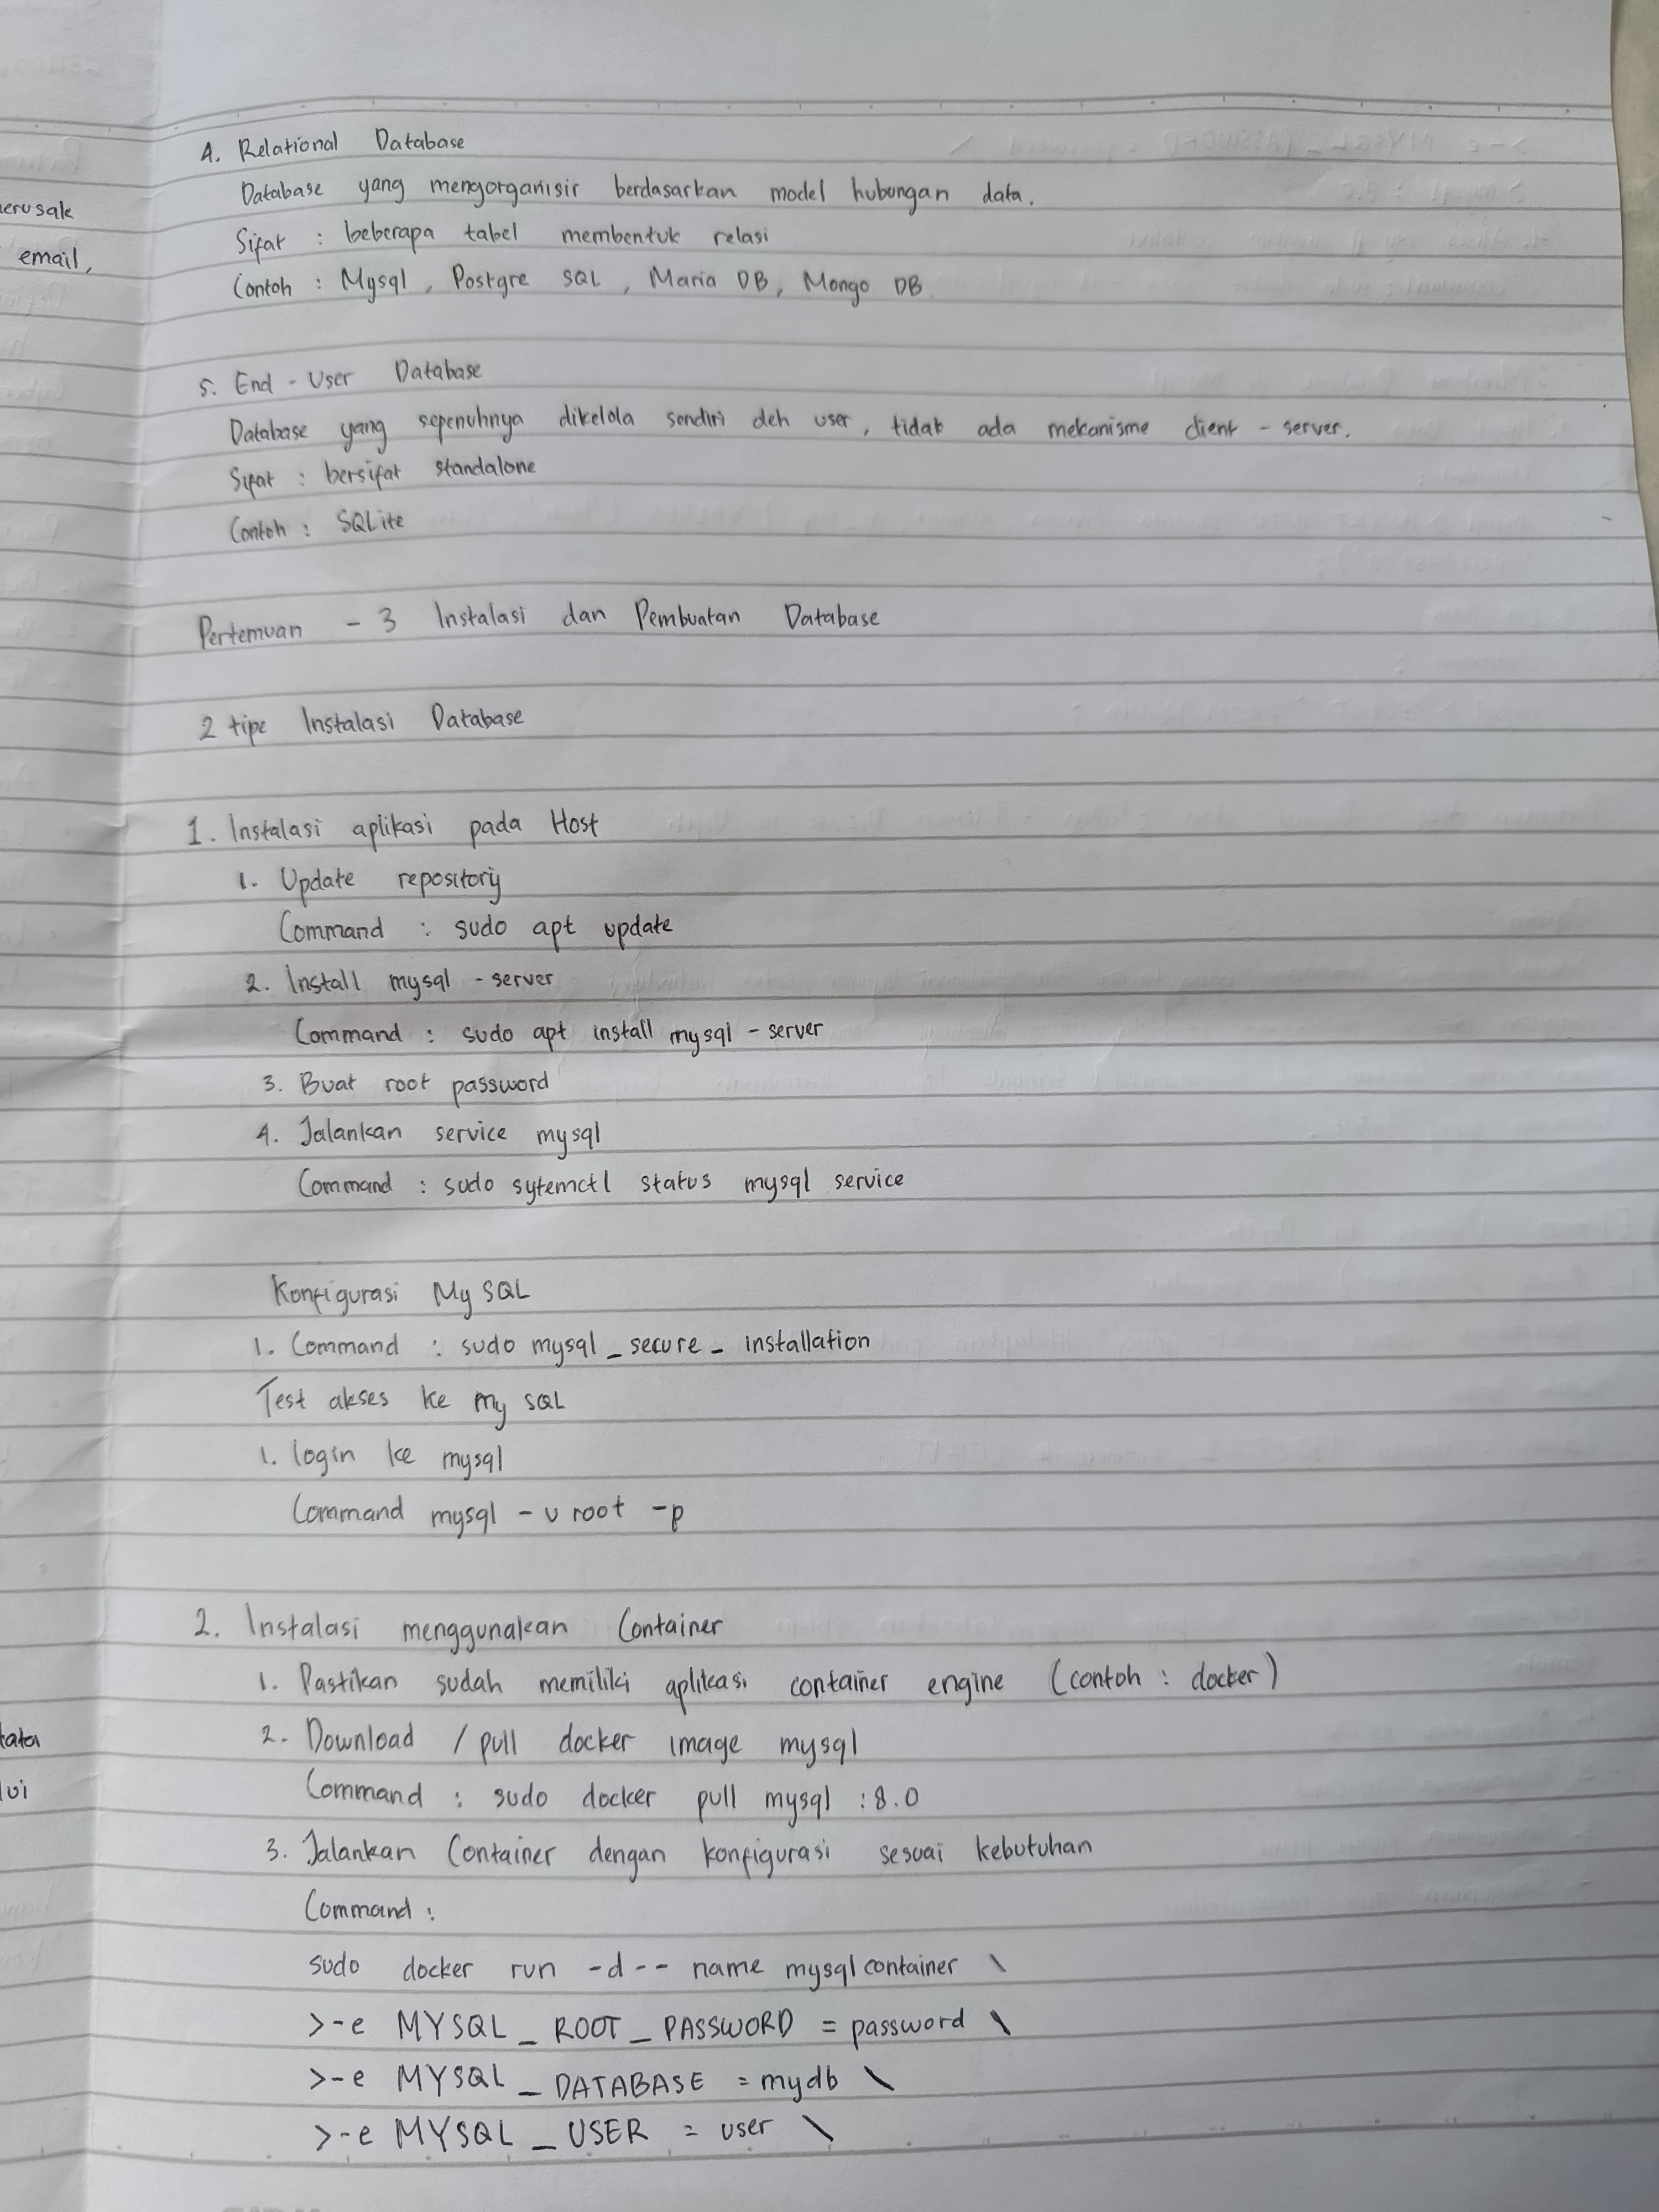 erusak
email,
4. Relational Database
Database yang mengorganisir berdasarkan model hubungan data.
Sifat : beberapa tabel membentuk relasi
Contoh : Mysql, Postgre SQL, Maria DB, Mongo DB
5. End - User Database
Database yang sepenuhnya dikelola sendiri oleh user, tidak ada mekanisme client - server.
Sifat : bersifat standalone
Contoh : SQLite
Pertemuan - 3 Instalasi dan Pembuatan Database
2 tipe Instalasi Database
1. Instalasi aplikasi pada Host
1. Update repository
Command : sudo apt update
2. Install mysql - server
Command : sudo apt install mysql - server
3. Buat root password
4. Jalankan service mysql
Command : sudo sytemctl status mysql service
Konfigurasi My SQL
1. Command : sudo mysql _ secure _ installation
Test akses ke my SQL
1. login ke mysql
Command mysql - u root -p
2. Instalasi menggunakan Container
1. Pastikan sudah memiliki aplikasi container engine (contoh : docker)
2. Download / pull docker image mysql
Command : sudo docker pull mysql :8.0
3. Jalankan Container dengan konfigurasi sesuai kebutuhan
Command :
sudo docker run -d -- name mysql container \
>-e MYSQL _ ROOT _ PASSWORD = password \
>-e MYSQL _ DATABASE = mydb \
>-e MYSQL _ USER = user \